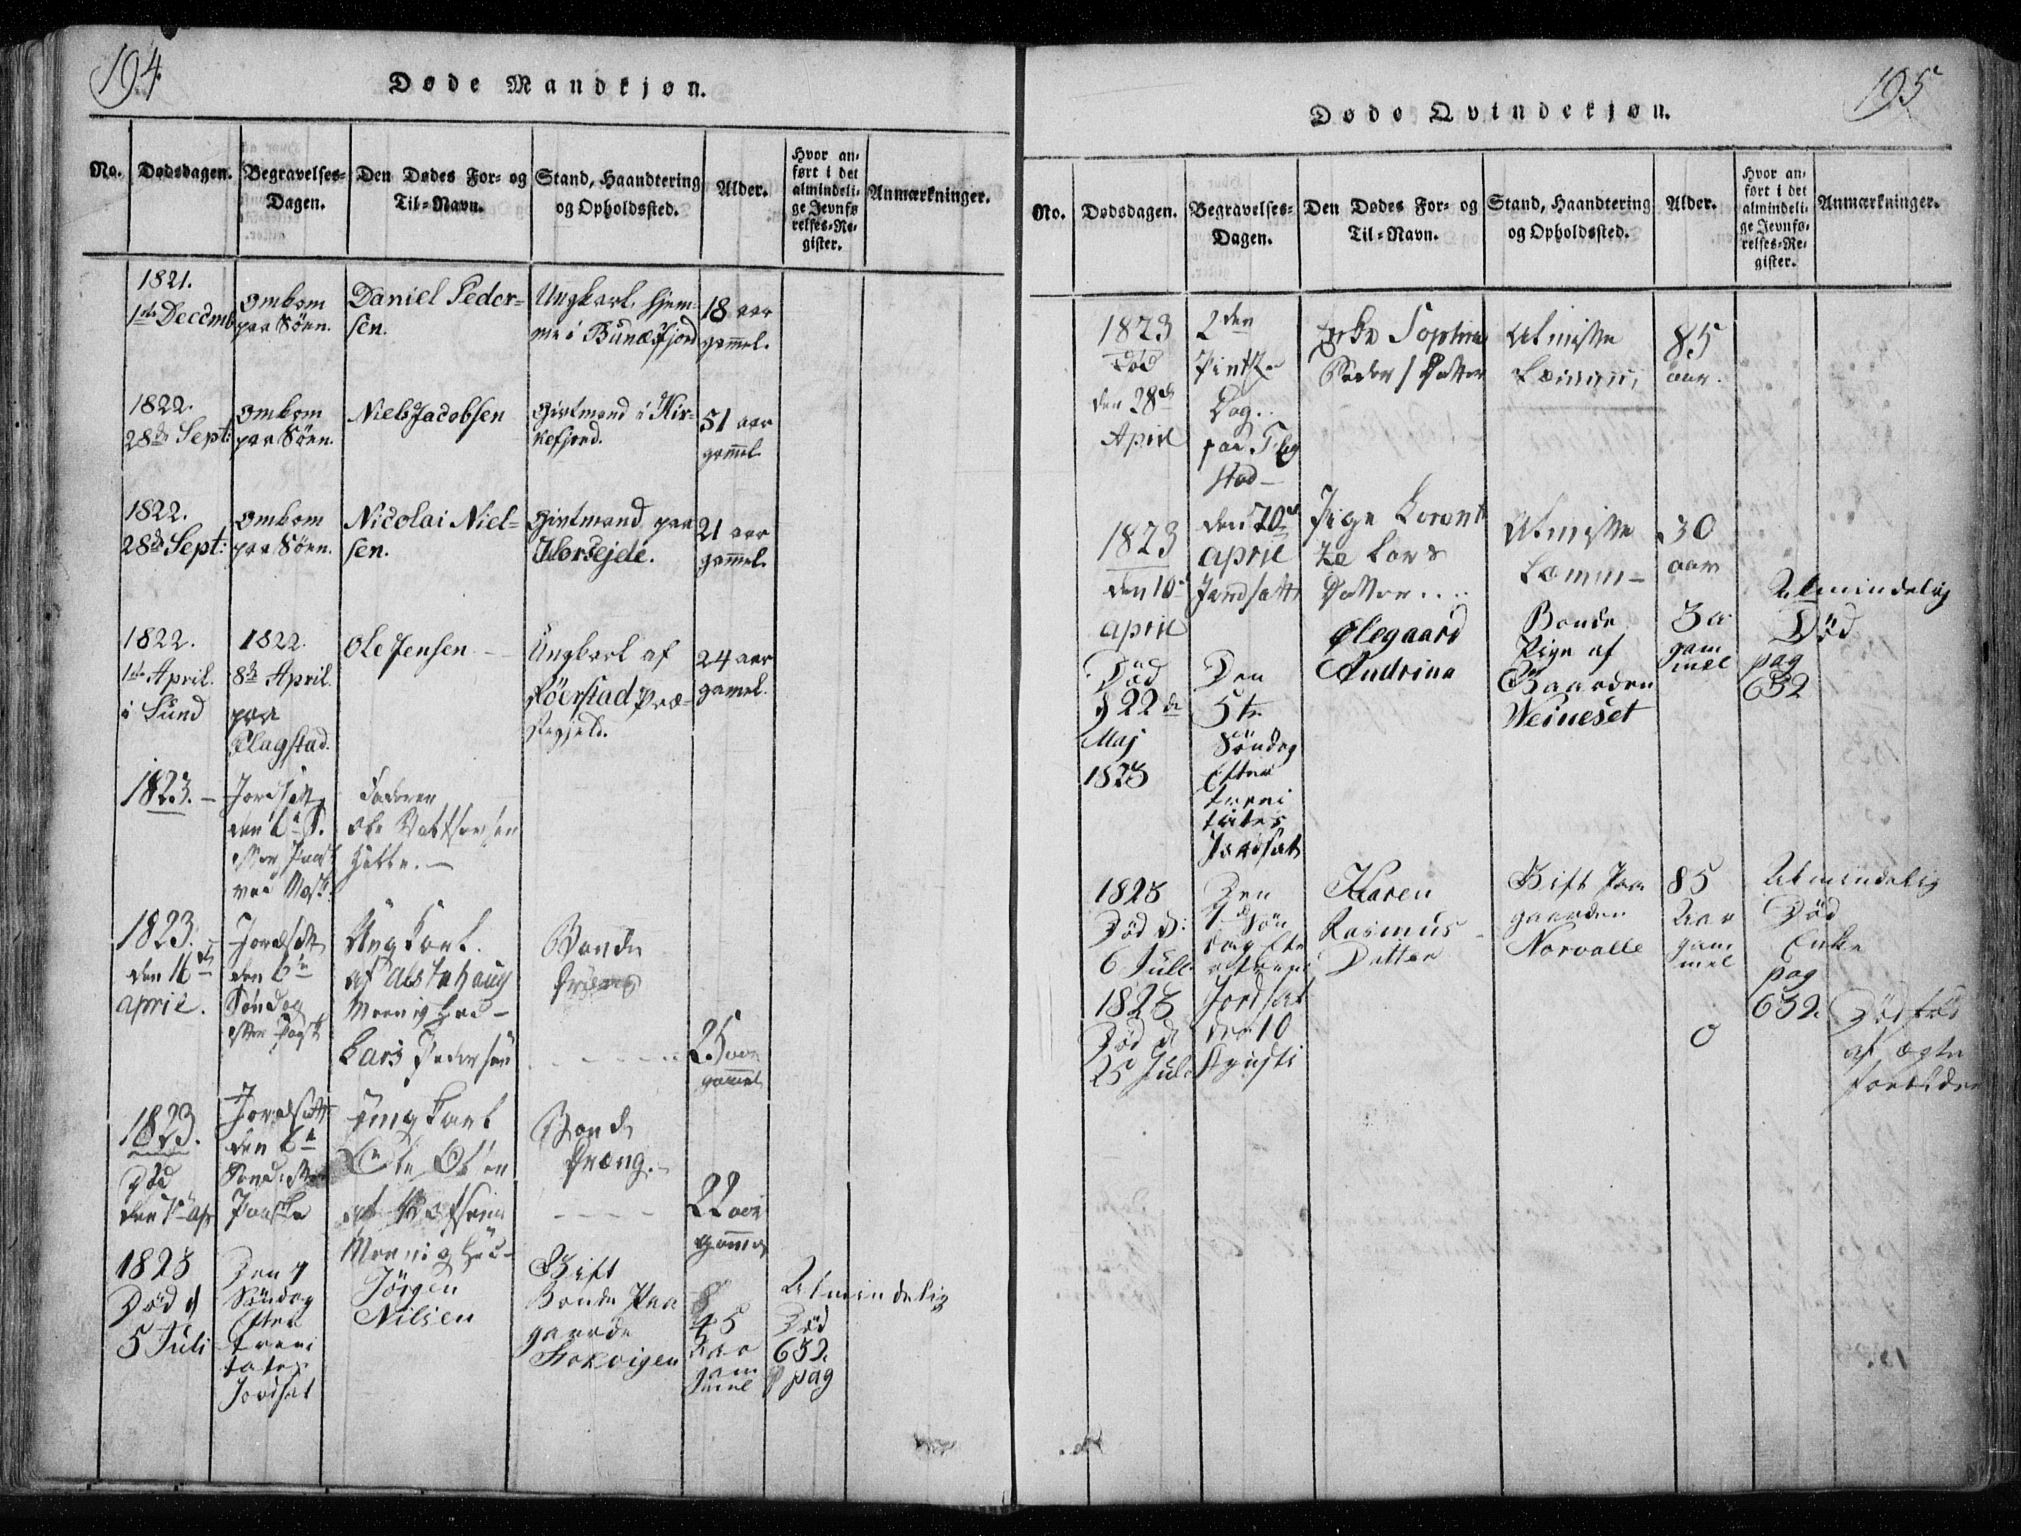 194
Døde Mandkjøn.
No.
Dødsdagen.
Begravelses-
Dagen.
Den Dødes For- og
Til-Navn.
Stand, Haandtering
og Opholdssted.
Alder.
Hvor an-
ført i det
almindeli-
ge Jevnfø
relses-Re-
gister.
Anmærkninger.
1821.
1ste Decemb
omkom
paa Søen.
Daniel Peder-
sen.
Ungkarl, hjem-
me i Bunæsfjord
18 aar
gammel.
1822.
28de Sept:
omkom
paa Søen.
Niels Jacobsen
Giftmand i Kir-
kefjord.
51 aar
gammel.
1822.
28de Sept:
omkom
paa Søen.
Nicolai Niel-
sen.
Giftmand paa
21 aar
gammel.
1822.
1ste April.
i Sund
1822.
8de April.
paa
Flagstad.
Ole Jensen
Ungkarl af
Præ-
stegjeld.
24 aar
gamel.
1823.
Jordsatt
den 6te S.
efter Paask
ved
Ole
1823.
den 16de
april.
Jordsatt
den 6te
Søndag
efter Paask
Ungkarl
af Alstahaug
Meenighed
Lars Pedersen
Bonde
25 aar
gammel
1823.
Død
den 1ste ap
Jordsatt
den 6te
Paaske
Ungkarl
Meenighed
Bonde
Dræng.
22 aar
gammel
1823
Død d
5 Juli
Den 7
Søndag
Efter
treni
tates
Jordsat
Jörgen
Nilsen
Gift
Bonde Paa
gaarde
45
Aar
gam
mel
Almindelig
Død
632
pag
195
Døde Qvindekjøn.
No.
Dødsdagen.
Begravelses-
Dagen.
Den Dødes For- og
Til-Navn.
Stand, Haandtering
og Opholdssted.
Alder.
Hvor an-
ført i det
almindeli-
ge Jevnfø-
relses-Re-
gister.
Anmærkninger.
1823
død
den 28de
April
2den
Pintse
Dag
paa Flag
stad
Sophia
Peders Datter
Almisse
Læmm
85
aar.
1823
den 10
april
den 20de
april
Jordsatt
Pige Lorent
ze Lars
Datter
Almisse
Læmm
30
aar
Død
d 22de
Maj
1823
Den
5te
Søndag
Efter
treni
tates
Jordsat
Olegaard
Andrina
Bonde
Pige af
Gaarden
Weineset
3 a
gam
mel
Almindelig
Død
pag
632
1823
Død d:
6 Juli
Den
7de Søn
dag Efte
Karen
Rasmus
Datter
Gift Paa
gaarden
Norvalle
85
Aar
gam
mel
Almindelig
Død
Enke
pag
632.
1823
Død d
25 Juli
Jordsat
den 10
Agusti
0
Dødfød
af Ægte
foreldre